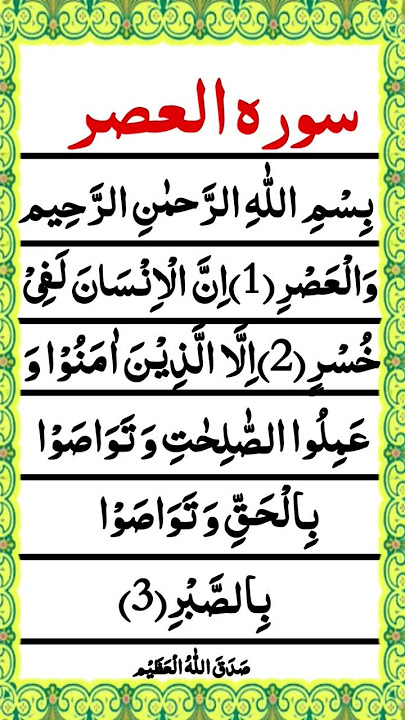 سورہ العصر
بِسْمِ اللّٰهِ الرَّحمٰنِ الرَّحِيم
وَالْعَصْرِ(1)اِنَّ الْاِنْسَانَ لَفِیْ
خُسْرٍ(2)اِلَّا الَّذِیْنَ اٰمَنُوْا وَ
عَمِلُوا الصّٰلِحٰتِ وَ تَوَاصَوْا
بِالْحَقِّ وَ تَوَاصَوْا
بِالصَّبْرِ(3)
صَدَقَ اللّٰهُ الْعَظِیْم